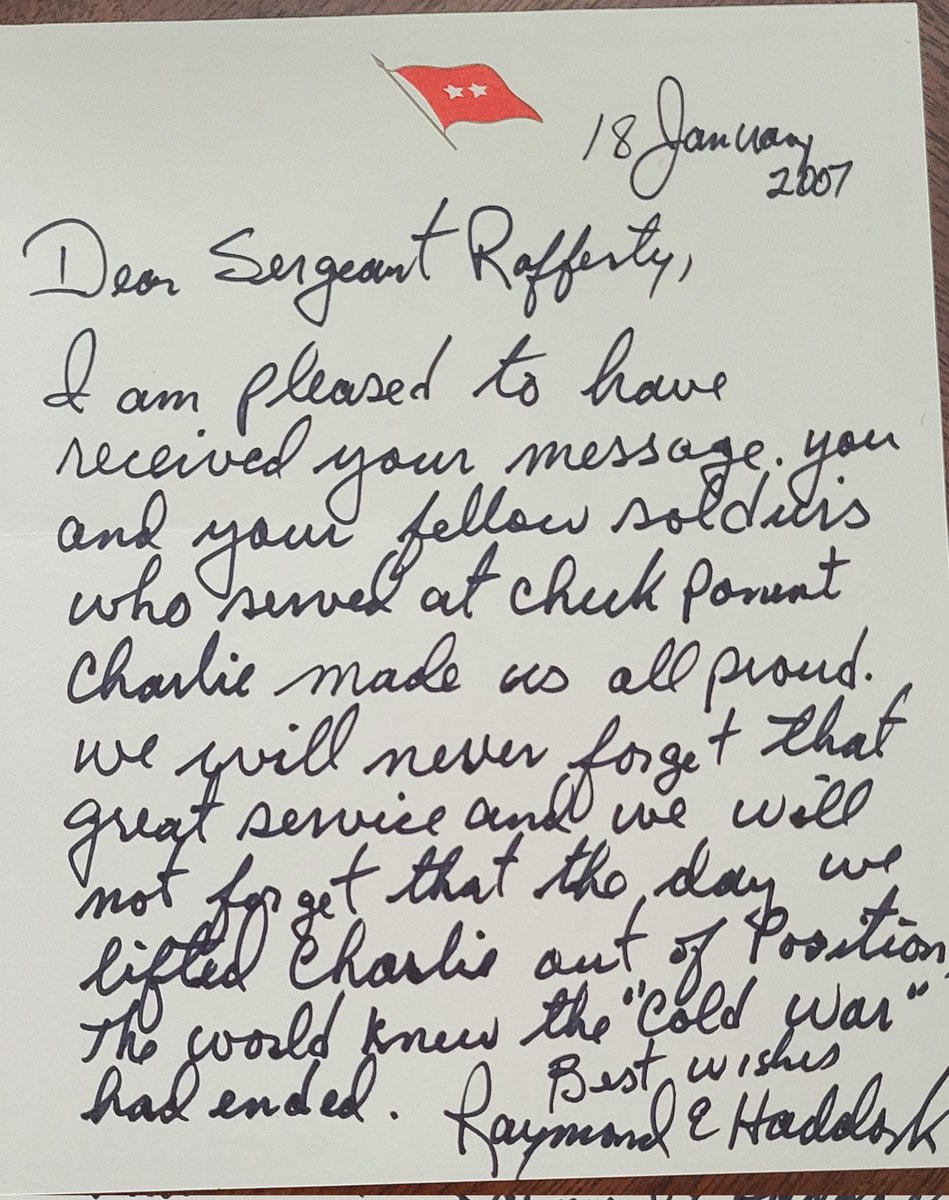 18 January
2007
Dear Sergeant Rafferty,
I am pleased to have
received your message. you
and your fellow soldiers
who served at check Point
Charlie made us all proud.
we will never forget that
great service and we will
not forget that the day we
lifted Charlie out of Position
The world knew the "Cold War"
had ended. Best wishes
Raymond E Haddock